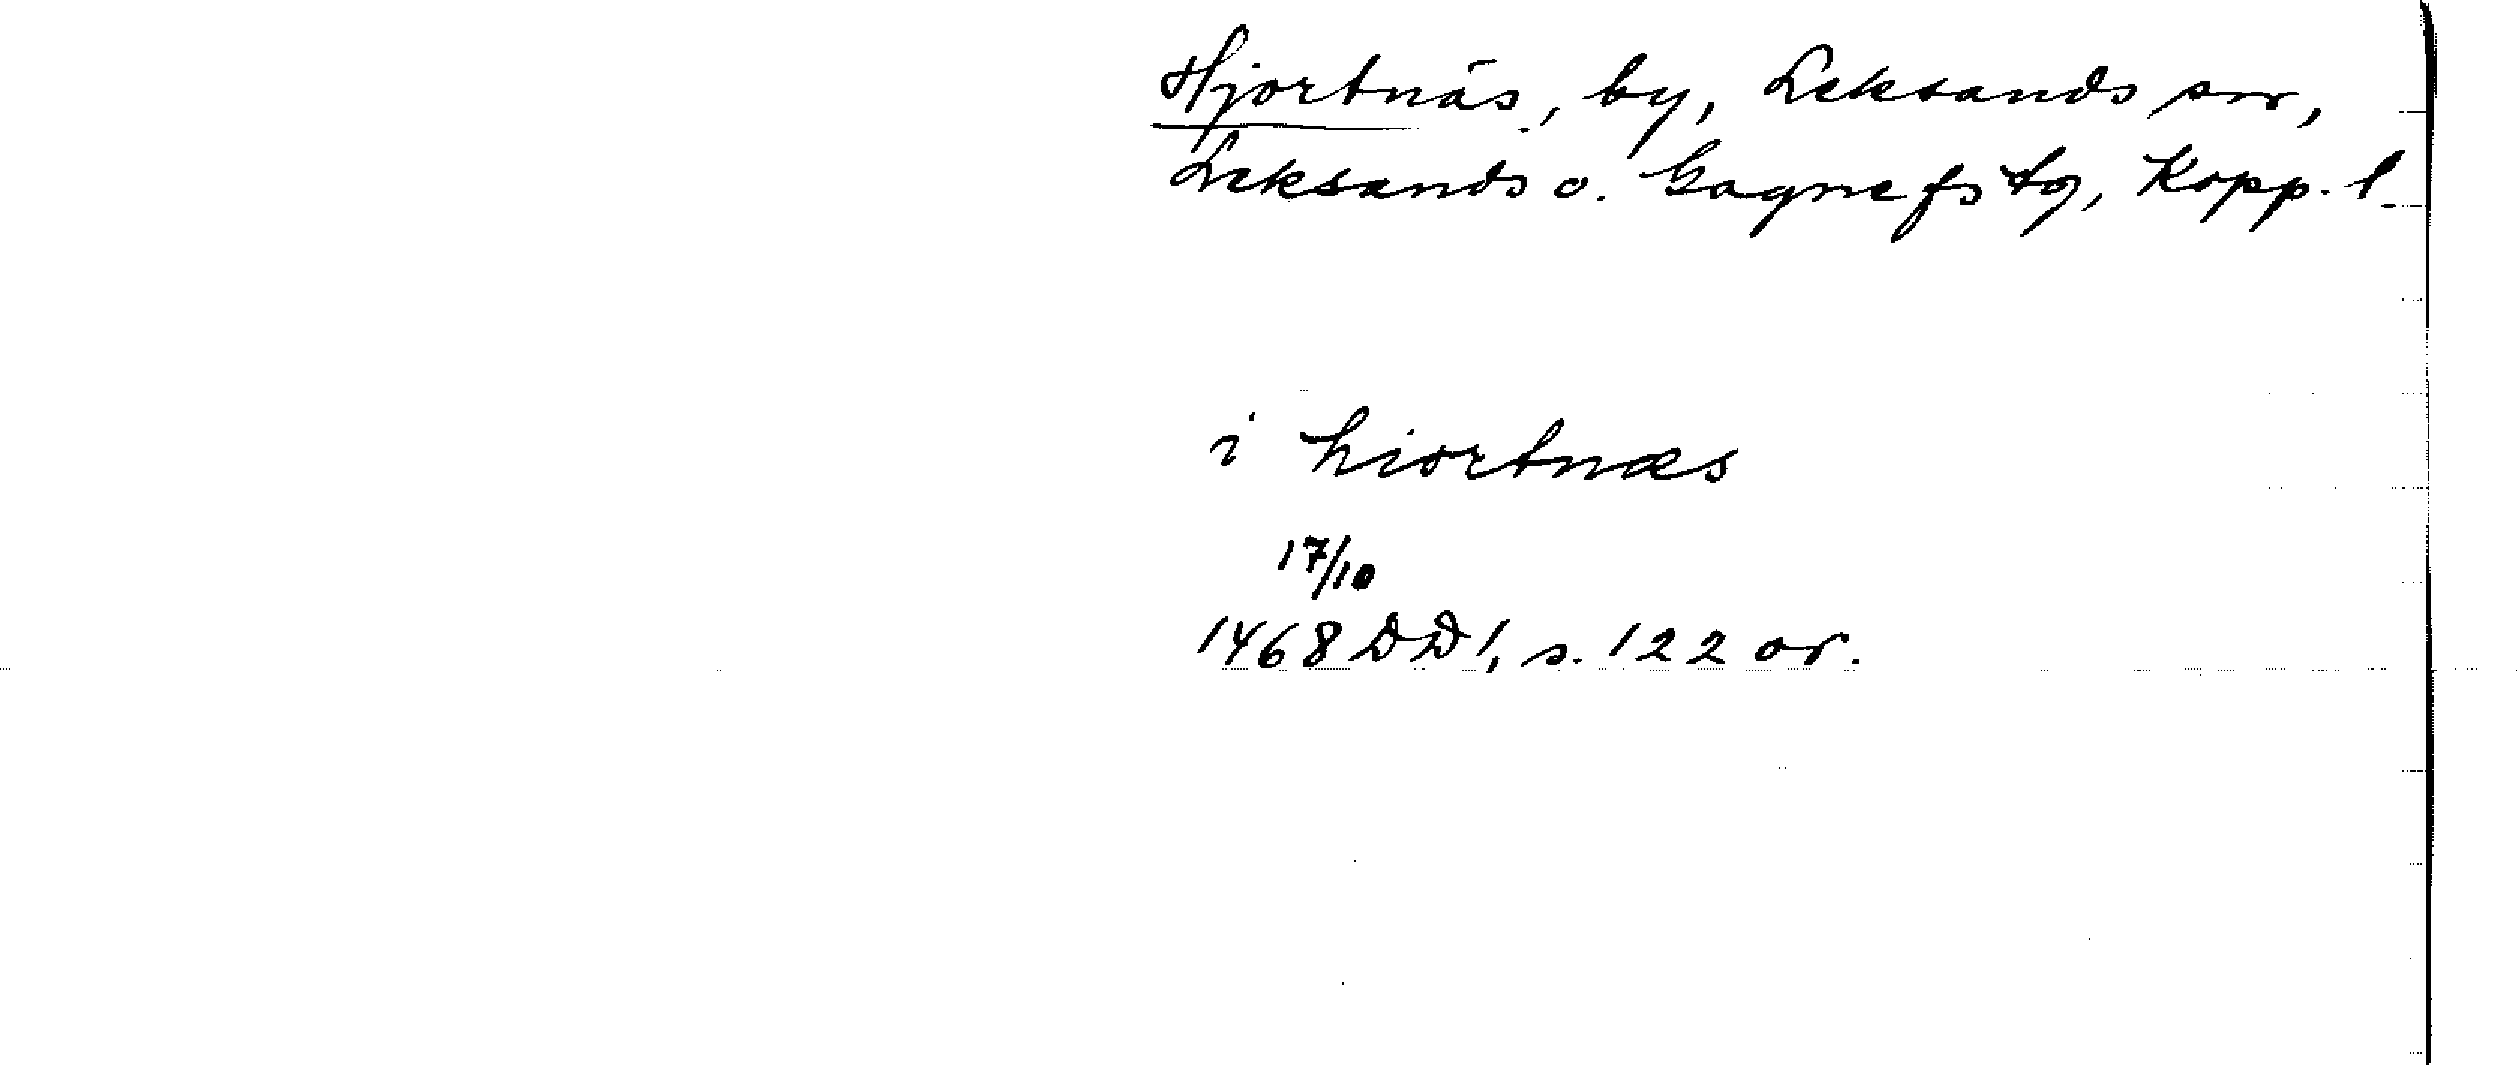 Hjortnäs, by, Leksands sn,
Leksands o. Gagnefs tg, Kopp. l.
i hiortnæs
17/10
1468 DD 1, s. 122 or.